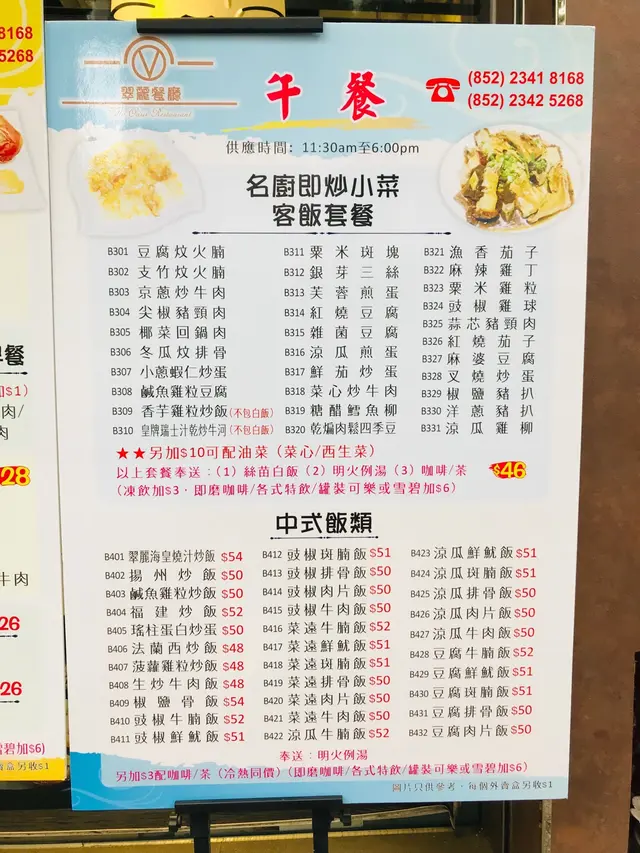 8168
5268
早餐
加$1)
肉/
肉
28
牛肉
26
26
雪碧加$6)
盒另收$1
翠麗餐廳
Restaurant
午餐
☎ (852) 2341 8168
(852) 2342 5268
供應時間: 11:30am至6:00pm
名廚即炒小菜
客飯套餐
B301 豆腐炆火腩
B302 支竹炆火腩
B303 京蔥炒牛肉
B304 尖椒豬頸肉
B305 椰菜回鍋肉
B306 冬瓜炆排骨
B307 小蔥蝦仁炒蛋
B308 鹹魚雞粒豆腐
B309 香芋雞粒炒飯(不包白飯)
B310 皇牌瑞士汁乾炒牛河(不包白飯)
B311 粟米斑塊
B312 銀芽三絲
B313 芙蓉煎蛋
B314 紅燒豆腐
B315 雜菌豆腐
B316 涼瓜煎蛋
B317 鮮茄炒蛋
B318 菜心炒牛肉
B319 糖醋鱈魚柳
B320 乾煸肉鬆四季豆
B321 漁香茄子
B322 麻辣雞丁
B323 粟米雞粒
B324 豉椒雞球
B325 蒜芯豬頸肉
B326 紅燒茄子
B327 麻婆豆腐
B328 叉燒炒蛋
B329 椒鹽豬扒
B330 洋蔥豬扒
B331 涼瓜雞柳
★★另加$10可配油菜 (菜心/西生菜)
以上套餐奉送:(1) 絲苗白飯 (2) 明火例湯 (3) 咖啡/茶
(凍飲加$3‧即磨咖啡/各式特飲/罐裝可樂或雪碧加$6)
$46
中式飯類
B401 翠麗海皇燒汁炒飯 $54
B402 揚州炒飯 $50
B403 鹹魚雞粒炒飯 $50
B404 福建炒飯 $52
B405 瑤柱蛋白炒蛋 $50
B406 法蘭西炒飯 $48
B407 菠蘿雞粒炒飯 $48
B408 生炒牛肉飯 $48
B409 椒鹽骨飯 $54
B410 豉椒牛腩飯 $52
B411 豉椒鮮魷飯 $51
B412 豉椒斑腩飯 $51
B413 豉椒排骨飯 $50
B414 豉椒肉片飯 $50
B415 豉椒牛肉飯 $50
B416 菜遠牛腩飯 $52
B417 菜遠鮮魷飯 $51
B418 菜遠斑腩飯 $51
B419 菜遠排骨飯 $50
B420 菜遠肉片飯 $50
B421 菜遠牛肉飯 $50
B422 涼瓜牛腩飯 $52
B423 涼瓜鮮魷飯 $51
B424 涼瓜斑腩飯 $51
B425 涼瓜排骨飯 $50
B426 涼瓜肉片飯 $50
B427 涼瓜牛肉飯 $50
B428 豆腐牛腩飯 $52
B429 豆腐鮮魷飯 $51
B430 豆腐斑腩飯 $51
B431 豆腐排骨飯 $50
B432 豆腐肉片飯 $50
奉送:明火例湯
另加$3配咖啡/茶 (冷熱同價) (即磨咖啡/各式特飲/罐裝可樂或雪碧加$6)
圖片只供參考‧每個外賣盒另收$1